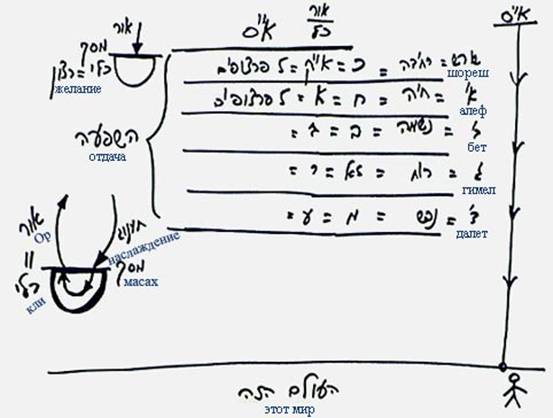 אור
כלי
א"ס
א"ס
אור
מסך
כלי = רצון
желание
שורש = יחידה = כ = א"ק = פרצופים
шореш
א' = חיה = ח = א = פרצופים
алеф
= נשמה = ב = ב =
бет
השפעה
отдача
= רוח = ז"א = י =
гимел
ד' = נפש = מ = ע =
далет
אור
Ор
תענוג
наслаждение
מסך
масах
=
כלי
кли
העולם הזה
этот мир